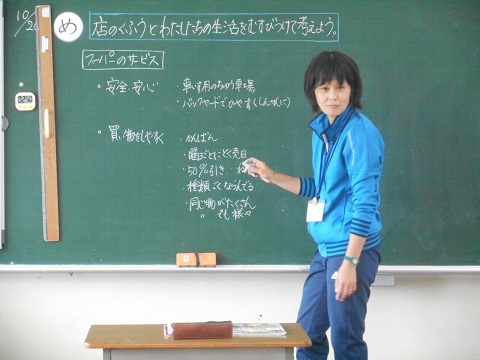 10/26
め 店のくふうとわたしたちの生活をむすびつけて考えよう。
スーパーのサービス
・安全、安心
・車いす用のちゅう車場
・バックヤードでひやす
・買い物をしやすく
・かんばん
・曜日ごとにとく売日
・50%引き
・種類ごとにならんでる
・同じ物がたくさん
〃 でも様々